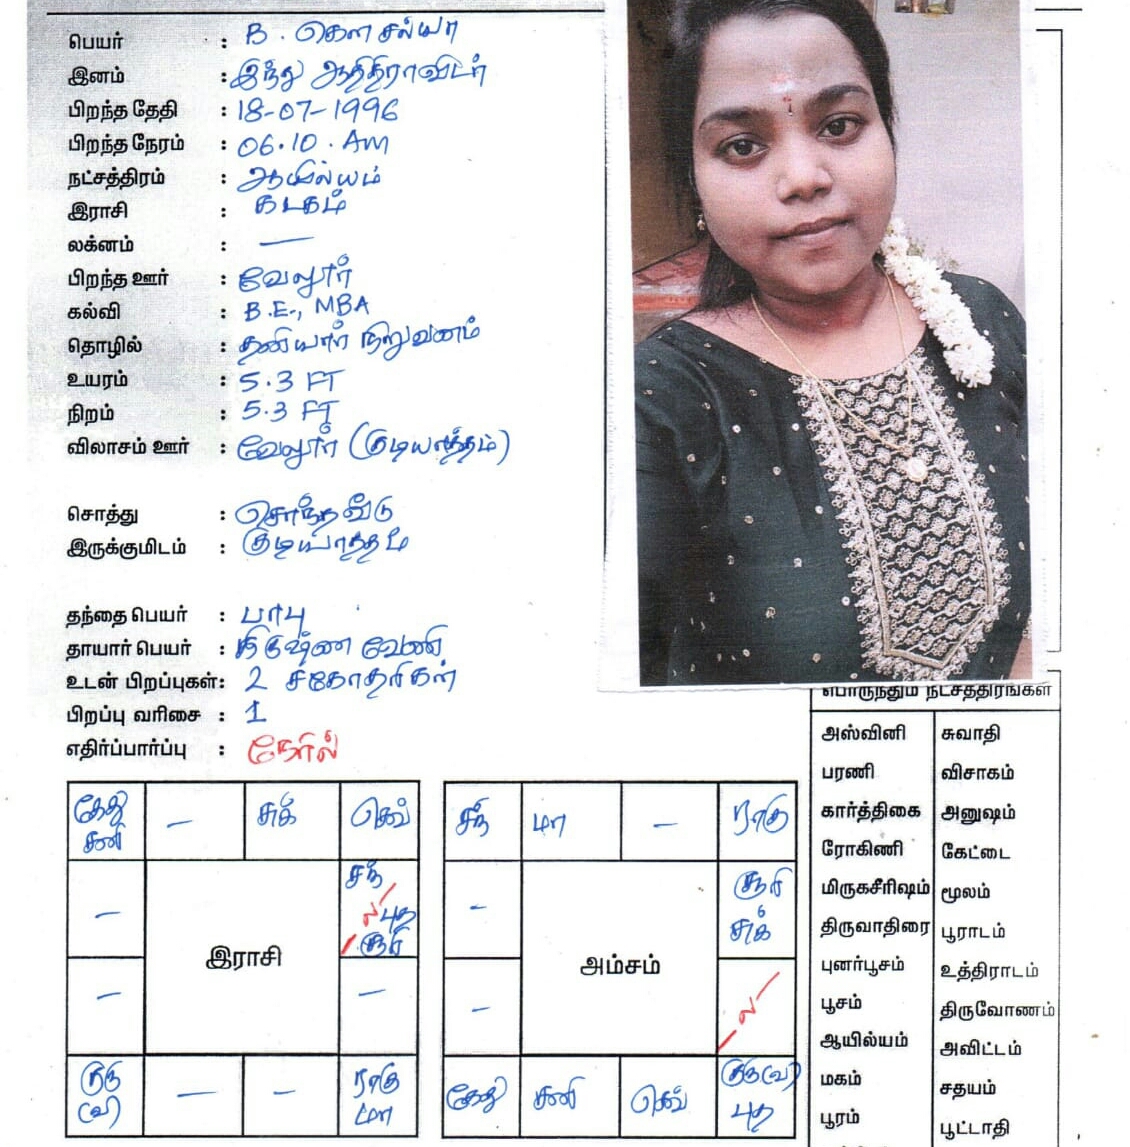 பெயர் : B. கௌசல்யா
இனம் : இந்து ஆதிதிராவிடர்
பிறந்த தேதி : 18-07-1996
பிறந்த நேரம் : 06.10. AM
நட்சத்திரம் : ஆயில்யம்
இராசி : கடகம்
லக்னம் : —
பிறந்த ஊர் : வேலூர்
கல்வி : B.E., MBA
தொழில் : தனியார் நிறுவனம்
உயரம் : 5.3 FT
நிறம் : 5.3 FT
விலாசம் ஊர் : வேலூர் (குடியாத்தம்)
சொத்து : சொந்தவீடு
இருக்குமிடம் : குடியாத்தம்
தந்தை பெயர் : பாபு
தாயார் பெயர் : கிருஷ்ணவேணி
உடன் பிறப்புகள் : 2 சகோதரிகள்
பிறப்பு வரிசை : 1
எதிர்ப்பார்ப்பு : நேரில்
கேது சனி — சுக் செவ்
— சந் ல புத சூரி
இராசி
— —
குரு (வ) — — ராகு மா
சந் மா — ராகு
— சூரி சுக்
அம்சம்
— ல
கேது சனி செவ் குரு(வ) புத
பொருந்தும் நட்சத்திரங்கள்
அஸ்வினி சுவாதி
பரணி விசாகம்
கார்த்திகை அனுஷம்
ரோகிணி கேட்டை
மிருகசீரிஷம் மூலம்
திருவாதிரை பூராடம்
புனர்பூசம் உத்திராடம்
பூசம் திருவோணம்
ஆயில்யம் அவிட்டம்
மகம் சதயம்
பூரம் பூட்டாதி